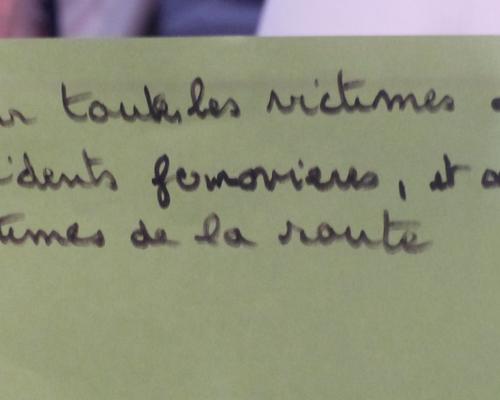 toutes les victimes
idents femovieres, et
times de la route